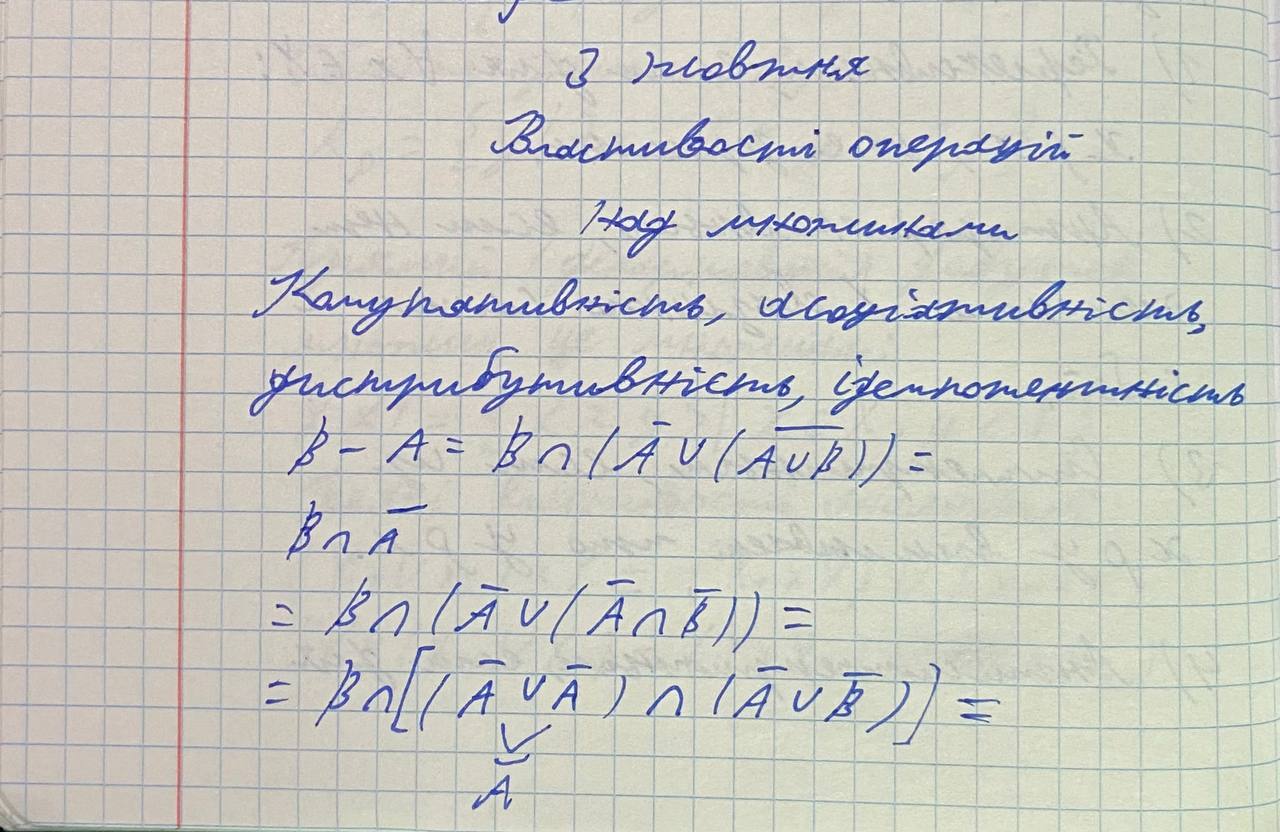 3 жовтня
Властивості операцій
Над множинами
Комутативність, асоціативність,
дистрибутивність, ідемпотентність
B - A = B ∩ (A̅ ∪ (A̅ ̅∪̅ ̅B̅)) =
B ∩ A̅
= B ∩ (A̅ ∪ (A̅ ∩ B̅)) =
= B ∩ [(A̅ ∪ A̅) ∩ (A̅ ∪ B̅)] =
A̅